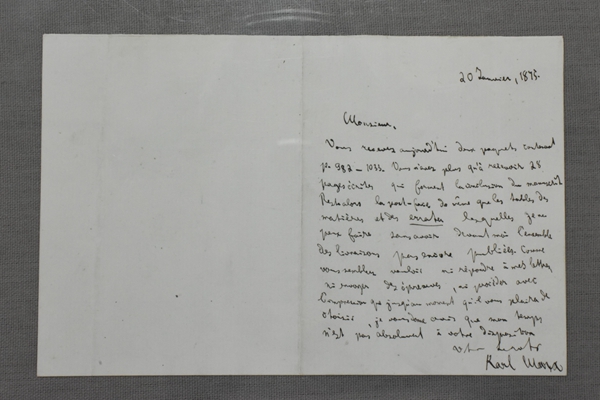 20 Janvier, 1875.
Monsieur,
Vous recevez aujourd'hui deux paquets contenant
pp. 982 – 1033. Vous n'avez plus qu'à recevoir 28
pages écrites qui forment la conclusion du manuscrit
Restalors la post-face de même que les tables des
matières et des errata lesquelles je ne
peux faire sans avoir devant moi l'ensemble
des livraisons pas encore publiées. Comme
vous semblez vouloir ni répondre à mes lettres,
ni envoyer des épreuves, ni procéder avec
l'impression que jusqu'au moment qu'il vous plaira de
choisir, je vous avis que mon temps
n'est pas absolument à votre disposition
Karl Marx